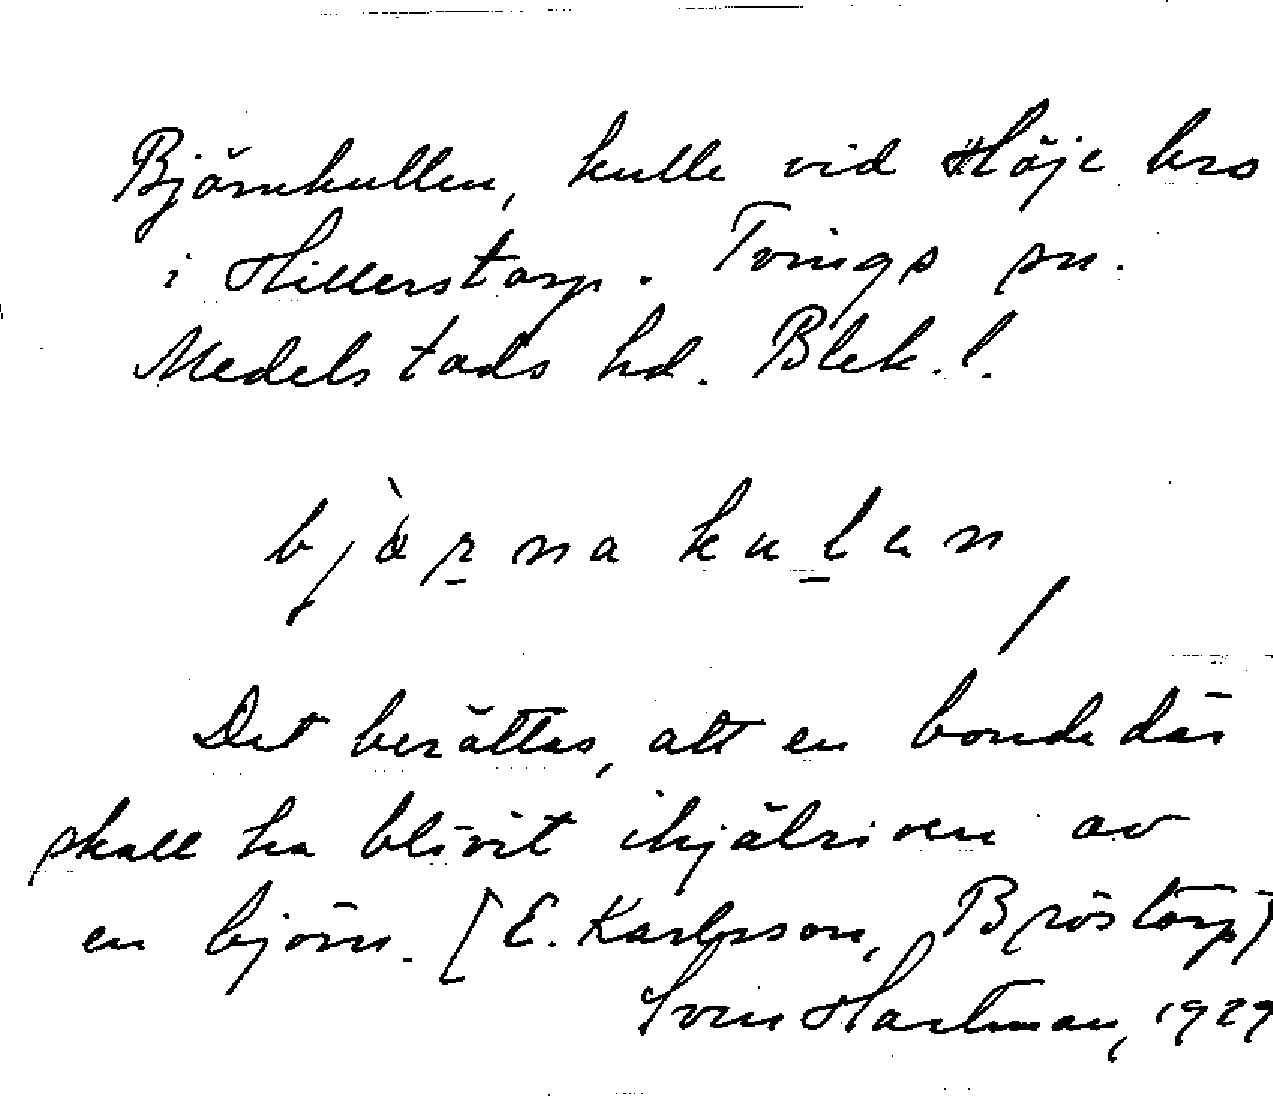 Björnkullen, kulle vid Höje bro
i Hillerstorp. Tvings sn.
Medelstads hd. Blek. l.
bjò̱rnakulen
Det berättas, att en bonde där
skall ha blivit ihjälriven av
en björn. [E. Karlsson, Bröstorp]
Sven Hartman, 1929